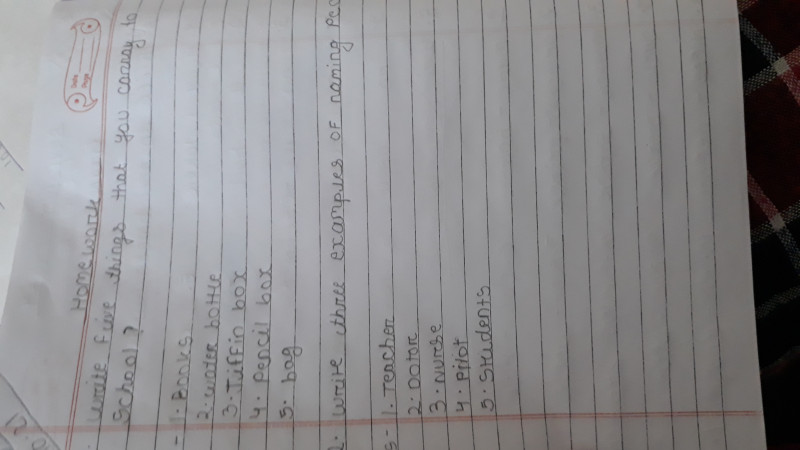 Homework
write five things that you carray to
school?
- 1. Books
2. water bottle
3. Tuffin box
4. pencil box
5. bag
2. write three examples of naming
s- 1. Teacher
2. Dotor
3. nurse
4. Pilot
5. Students